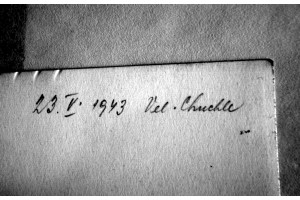 23. V. 1943 Vel. Chuchle